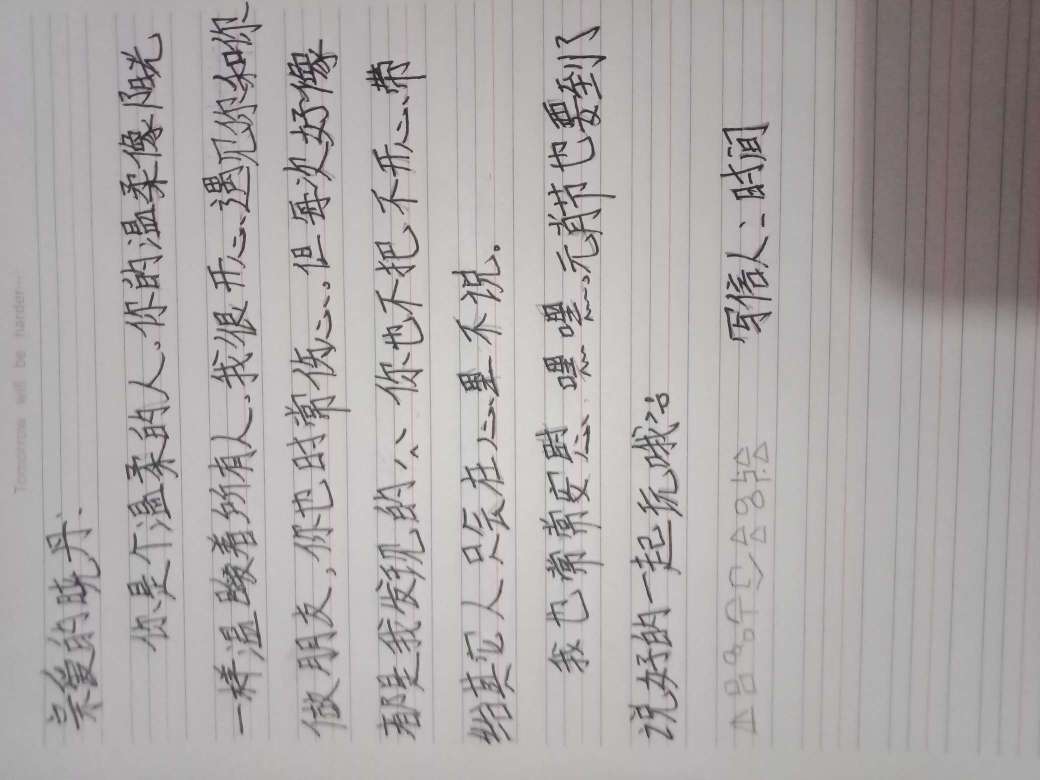 Tomorrow will be harder…
亲爱的晓丹:
你是个温柔的人,你的温柔像阳光
一样温暖着所有人,我很开心遇见你和你
做朋友,你也时常伤心,但每次好像
都是我发现的,你也不把不开心带
给其它人只会在心里不说。
我也常常安慰 嘿嘿,元宵节也要到了
说好的一起玩哦
写信人:时间